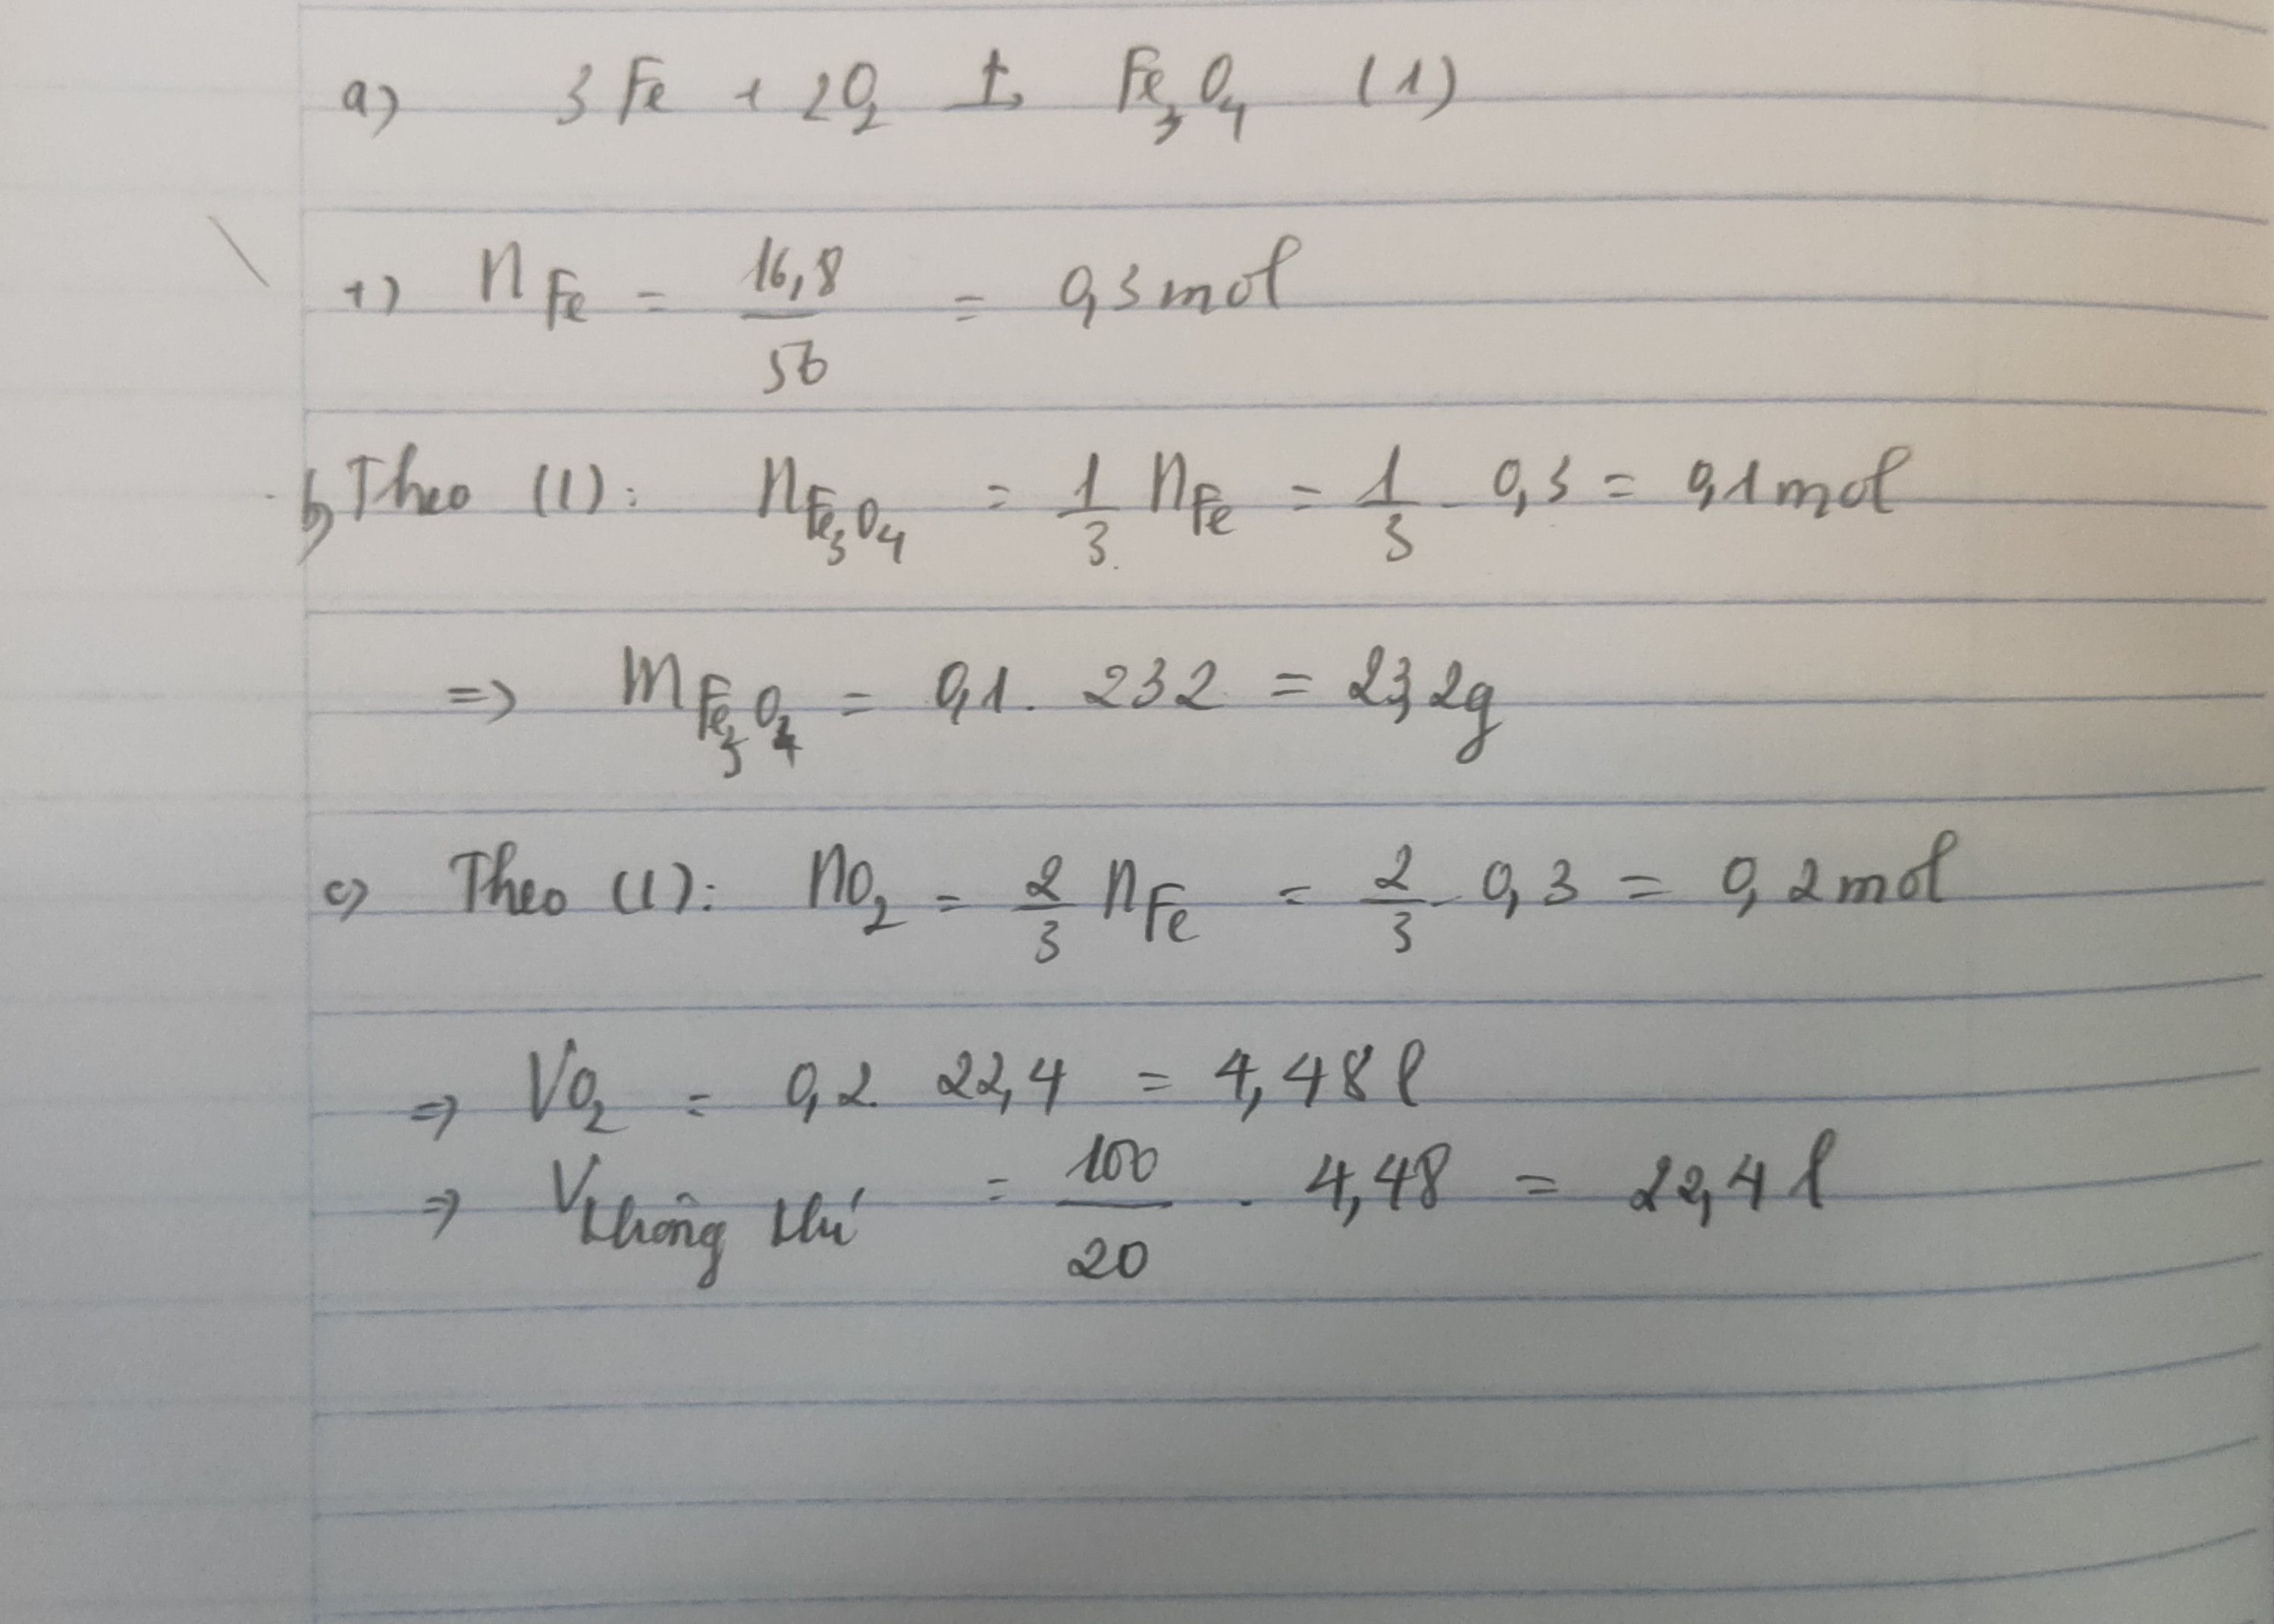 a) 3Fe + 2O₂ t→ Fe₃O₄ (1)
+) nFe = 16,8/56 = 0,3mol
b, Theo (1): nFe₃O₄ = 1/3 nFe = 1/3 . 0,3 = 0,1mol
=> mFe₃O₄ = 0,1. 232 = 23,2g
c) Theo (1): nO₂ = 2/3 nFe = 2/3 . 0,3 = 0,2mol
=> VO₂ = 0,2. 22,4 = 4,48 l
=> Vkhông khí = 100/20 . 4,48 = 22,4 l